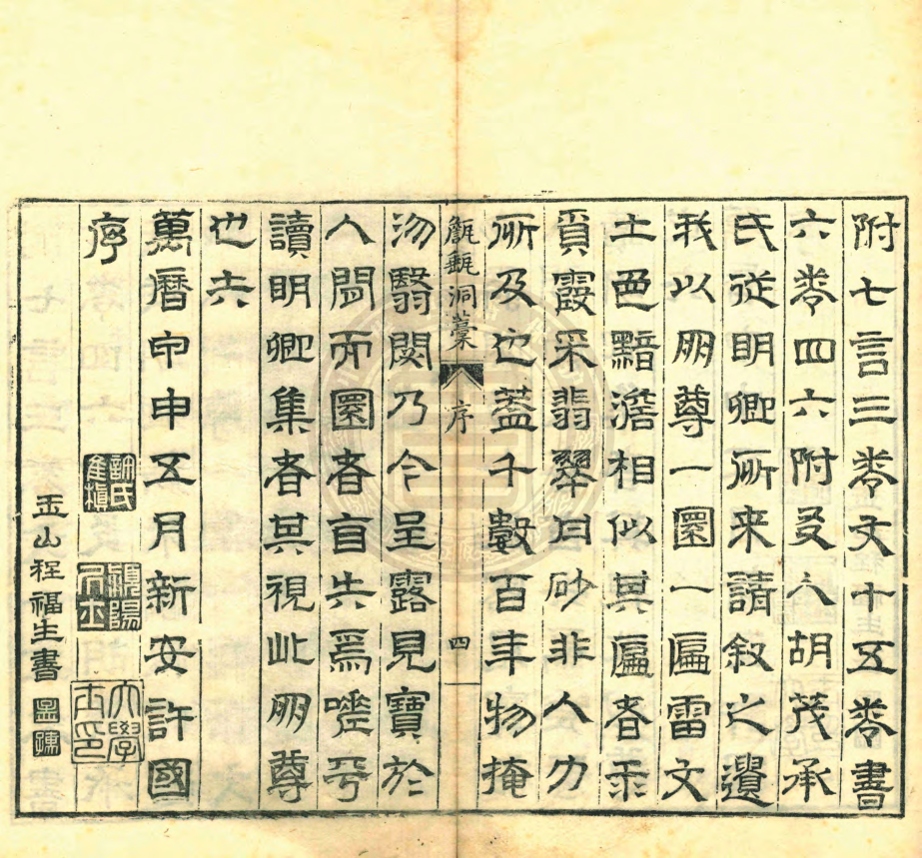 附七言三卷文十五卷書
六卷四六附友人胡茂承
氏從明卿所来請敘之遺
我以朙尊一圜一匾雷文
土色黯澹相似其匾者
霞采翡翠丹砂非人力
所及也蓋千數百年物掩
甔甀洞藁 序 四
沕翳閟乃今呈露見寶於
人間而圜者盲失焉嗟乎
讀明卿集者其視此朙尊
也夫
萬曆甲申五月新安許國
序
許氏維楨
潁陽居士
大學士印
玉山程福生書
孟孺